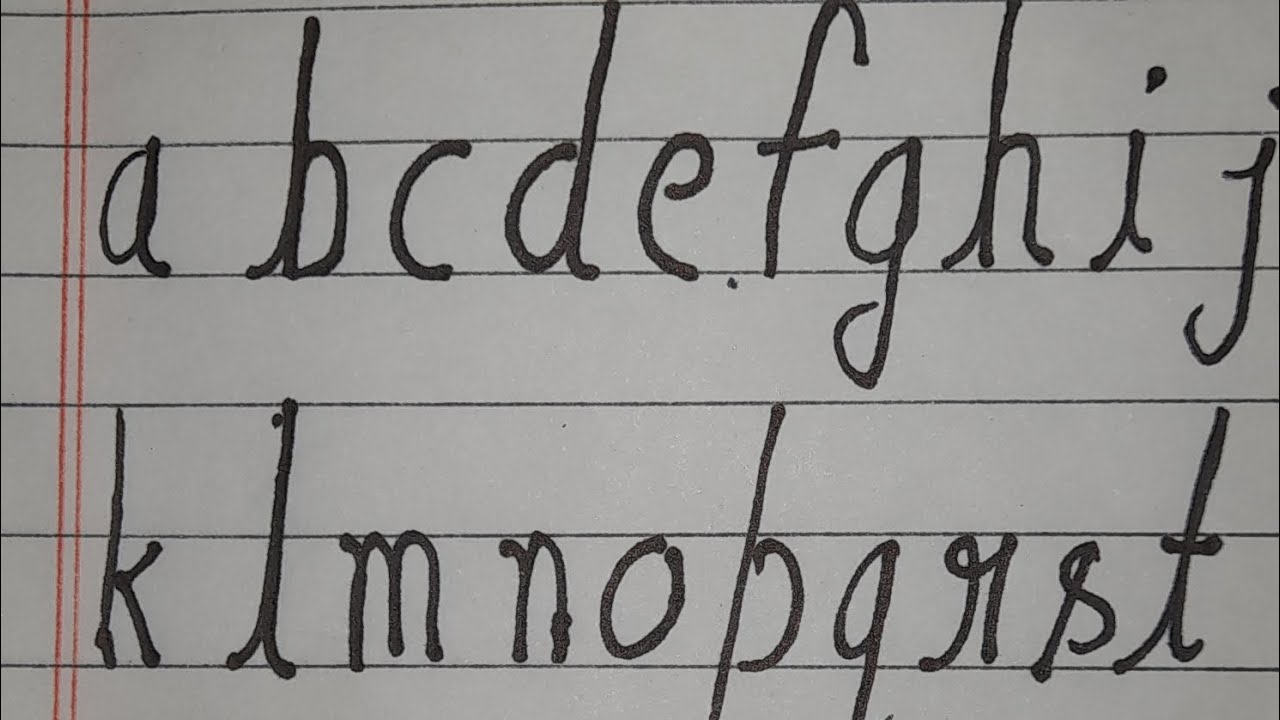 a b c d e f g h i j
k l m n o p q r s t